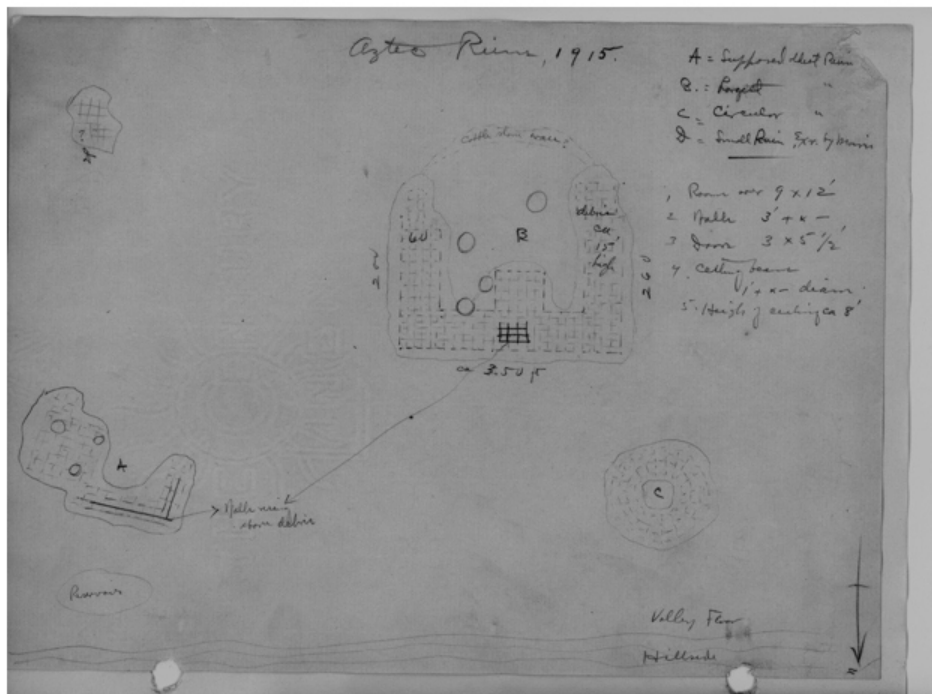 Aztec Ruin, 1915.
A = Supposed Ruin
B. = Largest "
C = Circular "
D = Small Ruin,
1, Rooms over 9 x 12'
2 Walls 3' + x -
3 Door 3 x 5 1/2'
4. Ceiling beams
1' + x - diam.
5. Height of ceiling ca 8'
Cobble stone
B
debris
ca
15'
high
60
200
260
ca 350 ft
A
Walls rising
above debris
C
Reservoir
Valley Floor
Hillside
N